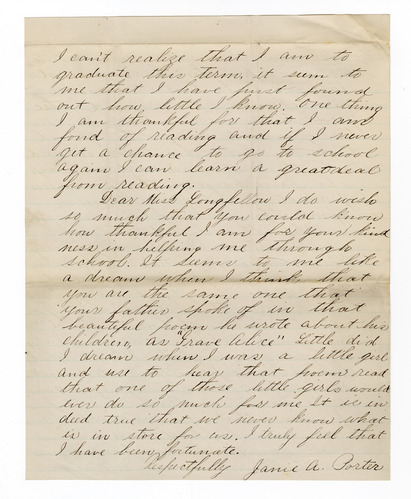 I can't realize that I am to
graduate this term, it sum to
me that I have just found
out how, little I know. One thing
I am thankful for that I am
fond of reading and if I never
get a chance to go to school
again I can learn a great deal
from reading.
Dear Miss Longfellow I do wish
so much that you could know
how thankful I am for your kind
ness in helping me through
school. It seems to me like
a dream when I think, that
you are the same one that
your father spoke of in that
beautiful poem he wrote about his
children, as "Grave Alice" Little did
I dream when I was a little girl
and use to hear that poem read
that one of those little girls would
ever do so much for me. It is in
deed true that we never know what
is in store for us. I truly feel that
I have been fortunate.
Respectfully Janie A. Porter